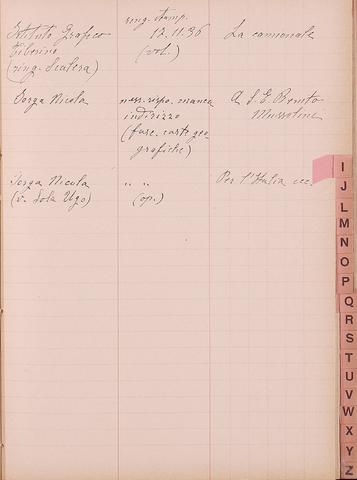 Istituto Grafico
Tiberino
(ring. Scalera)
ring. stamp.
12.11.36
(vol.)
La camionale
Jorga Nicola
ness. rispo. manca
indirizzo
(fasc. carte geo-
grafiche)
A S. E. Benito
Mussolini
Jorga Nicola
(v. Sola Ugo)
" "
(op.)
Per l'Italia ecc.
I
J
L
M
N
O
P
Q
R
S
T
U
V
W
X
Y
Z